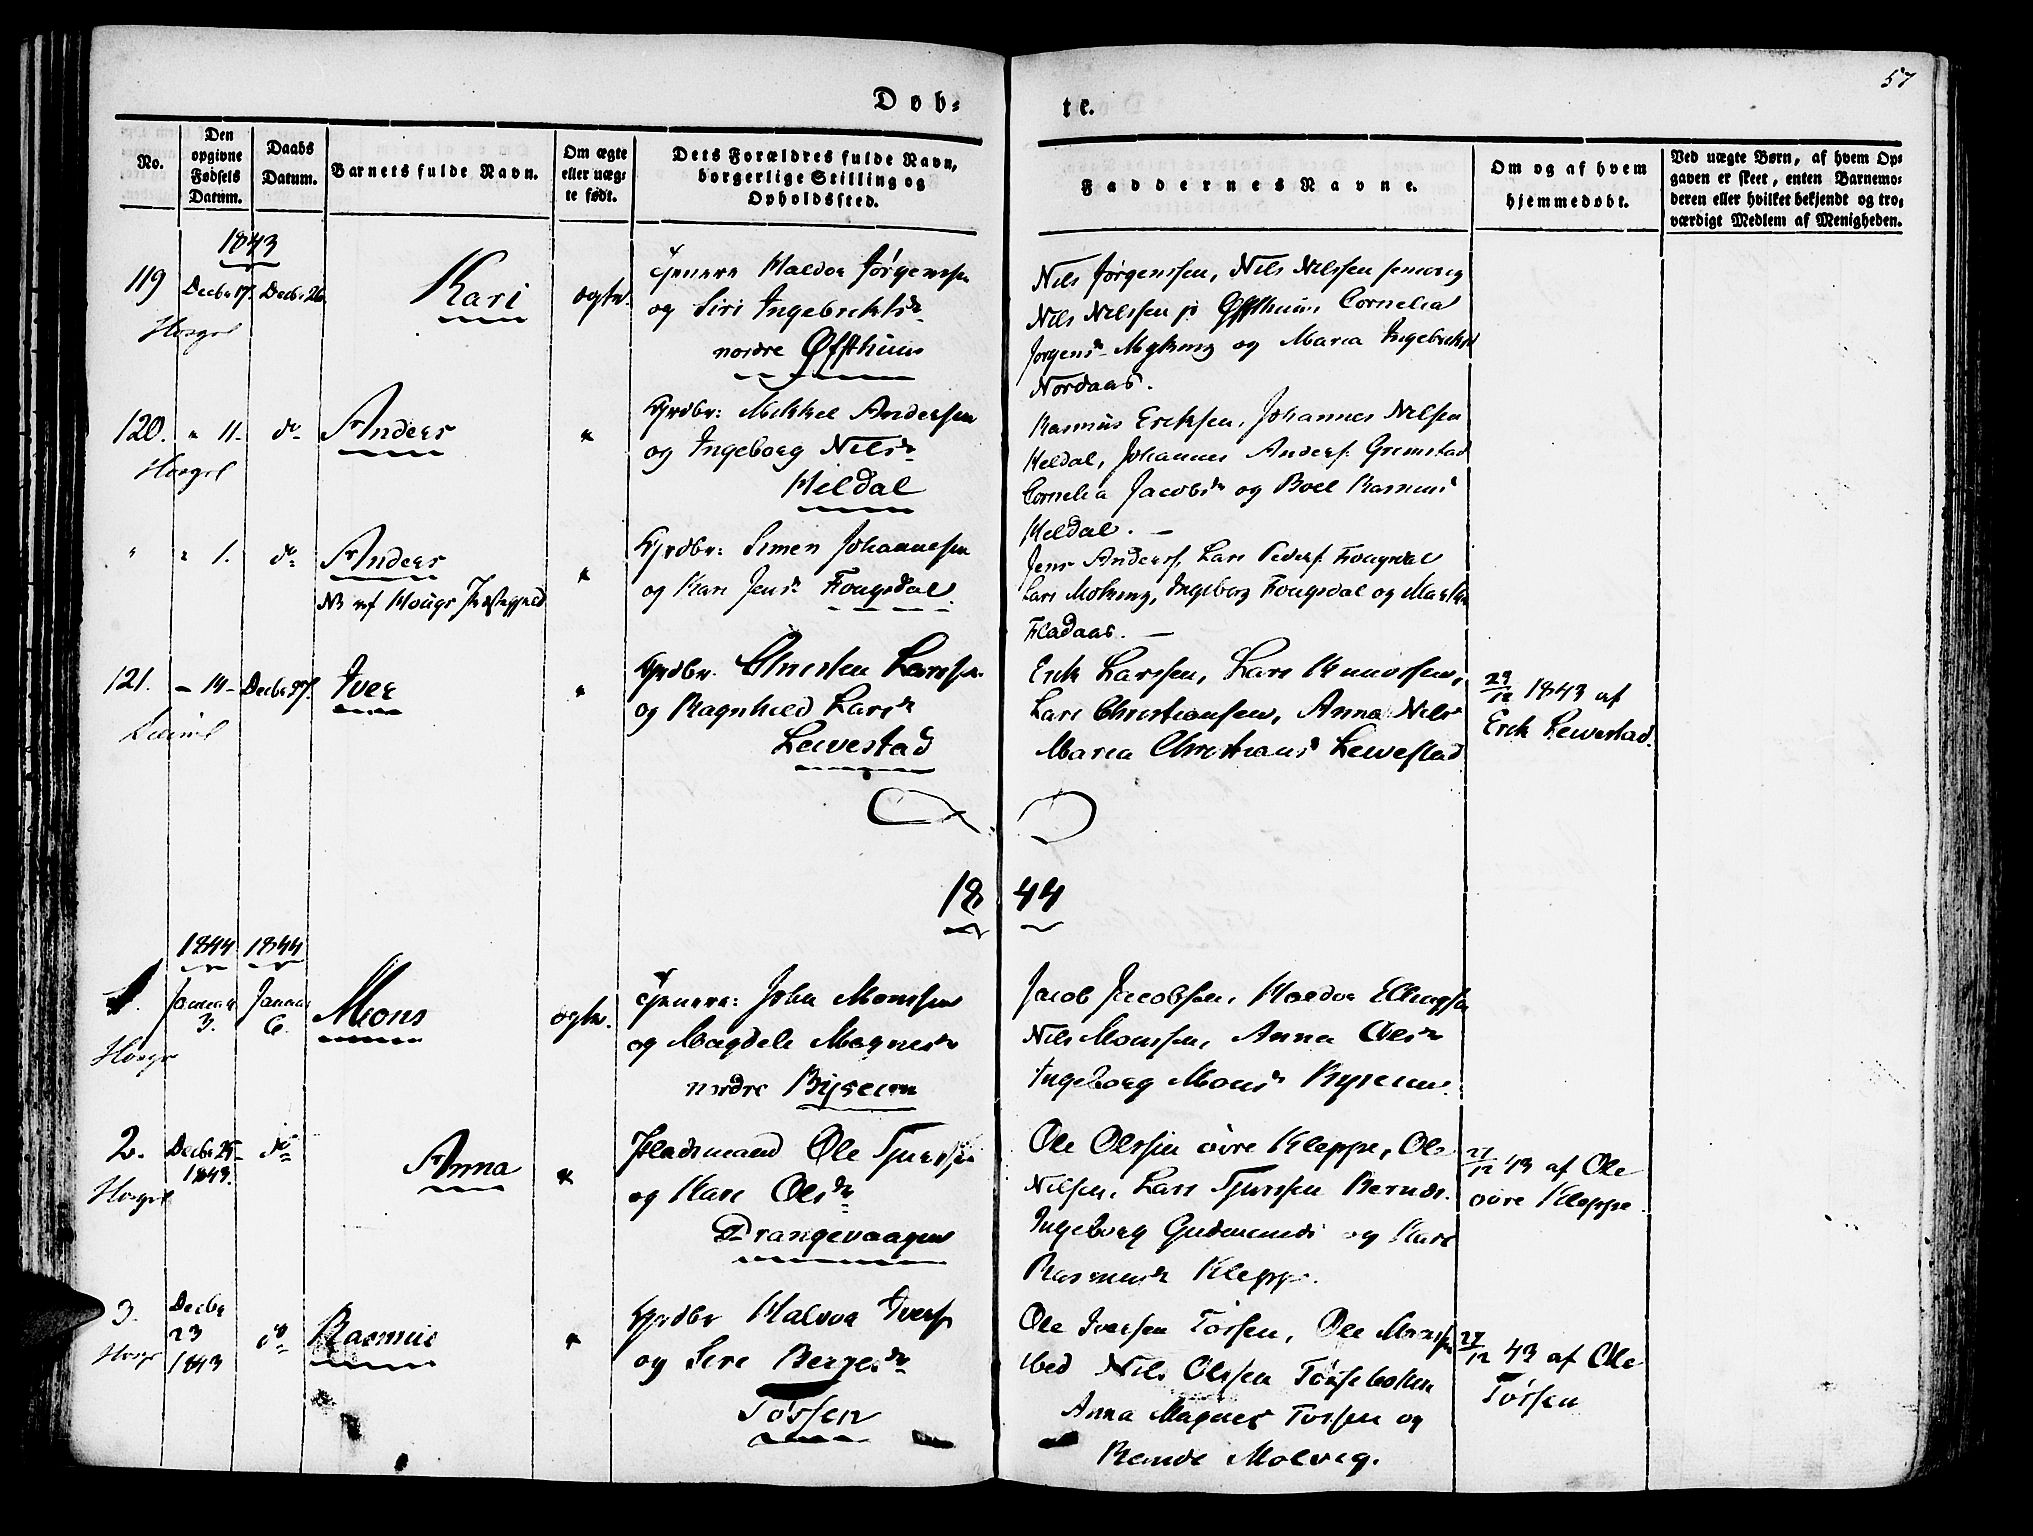 57
Døb-
te.
No.
Den opgivne Fødsels Datum.
Daabs Datum.
Barnets fulde Navn.
Om ægte eller uæg- te født.
Dets Forældres fulde Navn, borgerlige Stilling og Opholdssted.
Faddernes Navne.
Om og af hvem hjemmedøbt.
Ved uægte Børn, af hvem Op- gaven er skeet, enten Barnemo- deren eller hvilket bekjendt og tro- værdigt Medlem af Menigheden.
1843
119 Decbr 17. Decbr 26. Kari ægte. Haldor Jørgenssen
og Siri Ingebrektsdr
nordre Øffthuus
Nils Jørgenssen, Nils Nilssen
Nils Nilssen Øffthuus Cornelia
Jørgensdr Myking og Maria Ingebrektsd
Nordaas.
120. " 11. do Anders " Grdbr: Mikkel Andersen
og Ingeborg Nilsdr
Heldal
Rasmus Eriksen, Johannes Nilsen
Heldal, Johannes Anders. Gremstad
Cornelia Jacobsdr og Boel Rasmus
Heldal. —
" " 1. do Anders " Grdbr: Simen Johannesen
NB af Hougs Præstegjeld
og Kari Jensdr Fougsdal.
Jens Anders, Lars Peders. Fougsdal
Lars Molvung, Ingeborg Fougsdal og Martha
Fladaas. —
121. — 14 — Decbr 27. Iver " Grdbr. Christen Larssen
og Ragnhild Larsdr
Lewestad
Erik Larssen, Lars Knudssen,
Lars Christiansen, Anna Nils
Maria Christians Lewestad
29/12 1843 af
Erik Lewestad.
1844
1844 1844
1. Januar 3. Januar 6. Mons ægte. John Monssen
og Magdele Magnesdr
nordre Byseen
Jacob Jacobsen, Haldor Ellingsen
Nils Monssen, Anna Olsdr
Ingeborg Monsdr Byseen.
2. Decbr 25 1843. do Anna " Pladsmand Ole Tjerssen
og Kari Olsdr
Drangevaagen
Ole Olssen øvre Kleppe, Ole
Nilsen, Lars Tjerssen
Ingeborg Gudmunds og Kari
Rasmusdr Kleppe.
27/12 43 af Ole
øvre Kleppe.
3. Decbr 23 1843 do Rasmus " Grdbr Haldor Ivers
og Siri Bergesdr
Tøssen
Ole Iversen Tøssen, Ole Monssen
ibid Nils Olssen Tøssebotten
Anna Magnes Tøssen og
Molvig.
27/12 43 af Ole
Tøssen